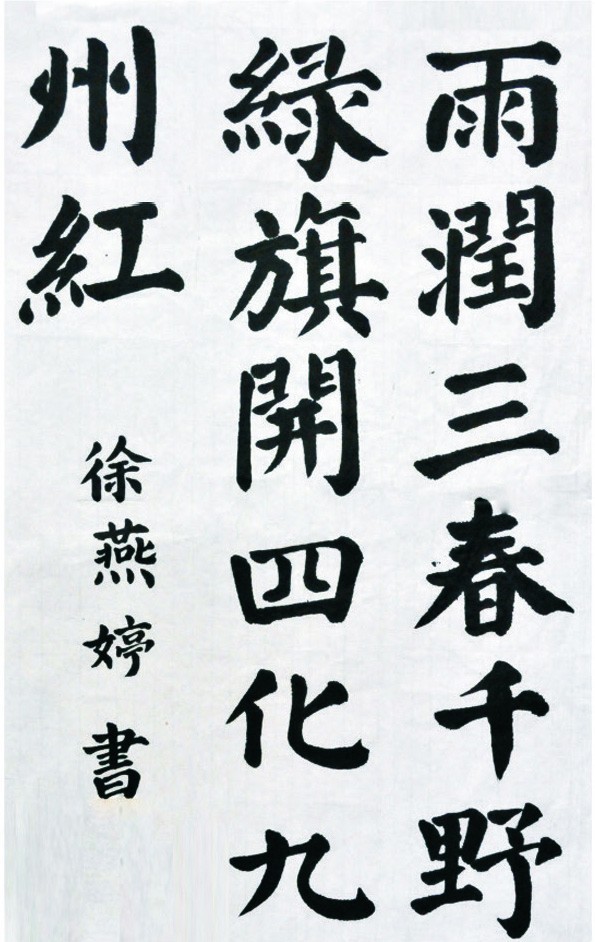 雨潤三春千野
緑旗開四化九
州紅
徐燕婷書